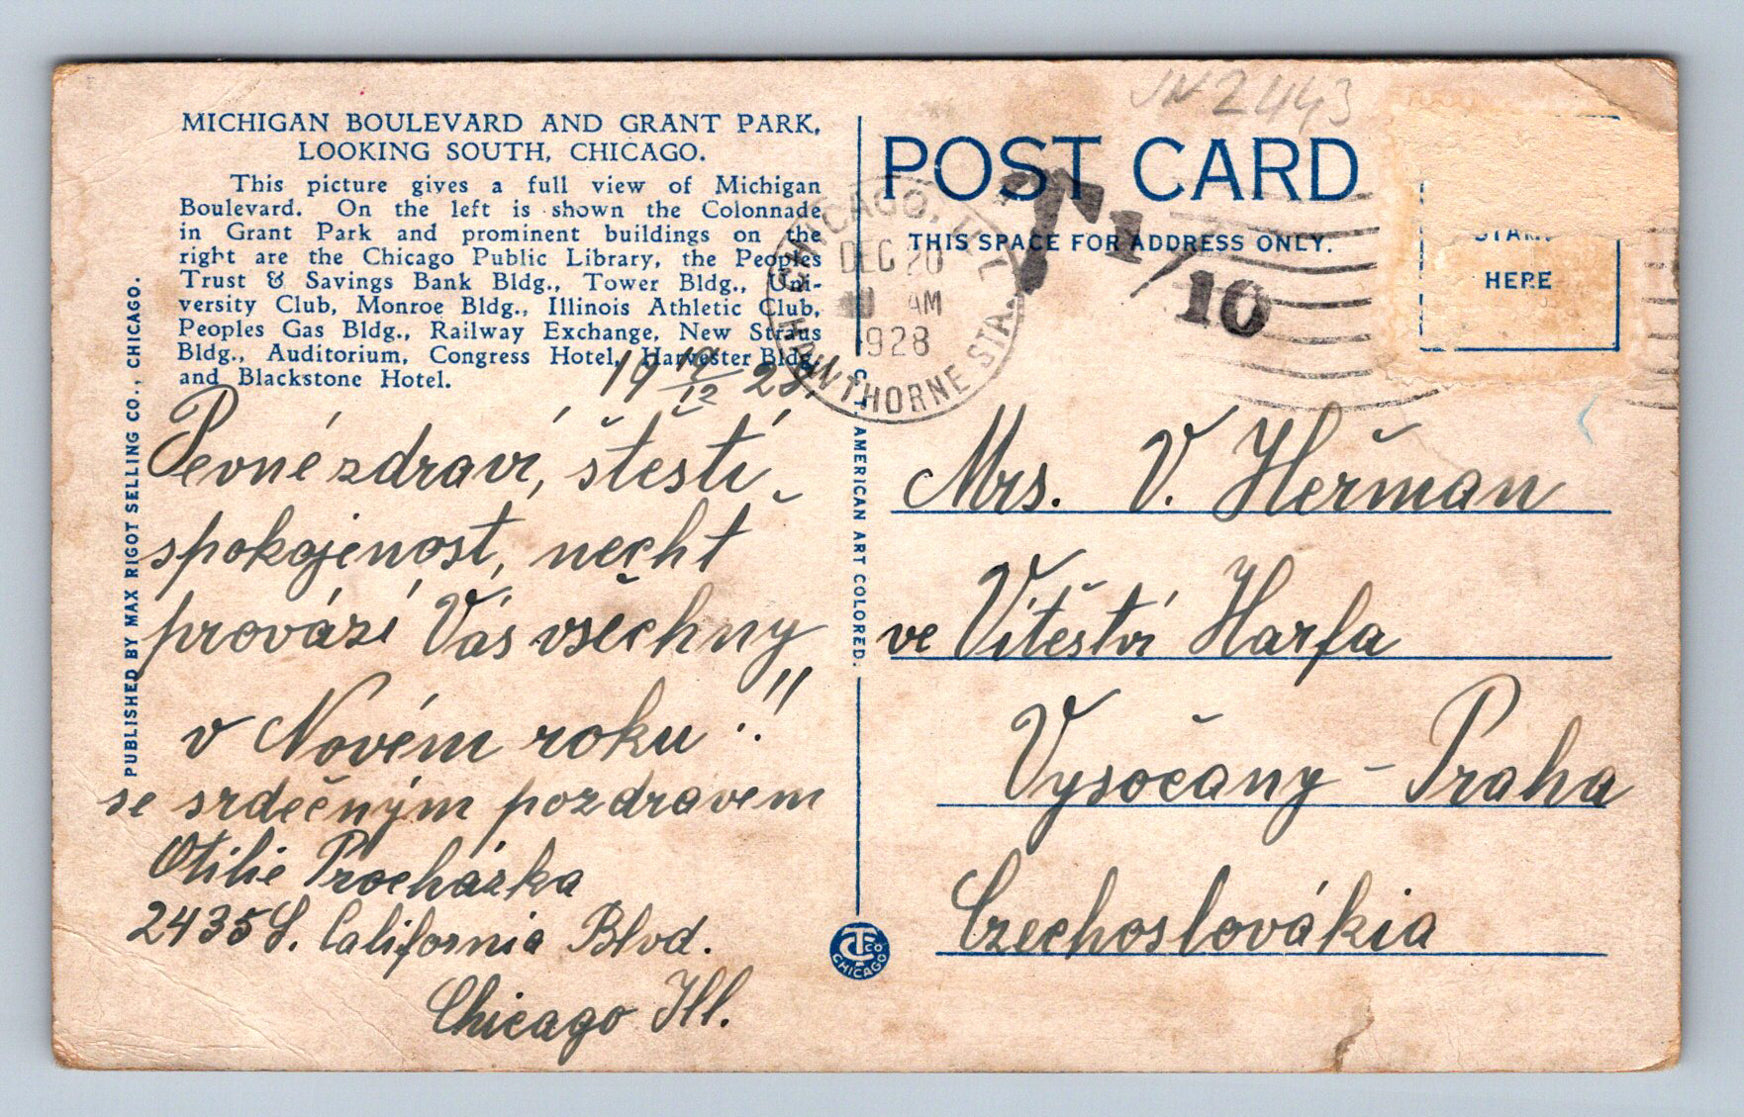 MICHIGAN BOULEVARD AND GRANT PARK,
LOOKING SOUTH, CHICAGO.
This picture gives a full view of Michigan
Boulevard. On the left is shown the Colonnade
in Grant Park and prominent buildings on the
right are the Chicago Public Library, the Peoples
Trust & Savings Bank Bldg., Tower Bldg., Uni-
versity Club, Monroe Bldg., Illinois Athletic Club,
Peoples Gas Bldg., Railway Exchange, New Straus
Bldg., Auditorium, Congress Hotel, Harvester Bldg.
and Blackstone Hotel.
PUBLISHED BY MAX RIGOT SELLING CO., CHICAGO.
19 19/12 28.
Pevné zdraví, štěstí
spokojenost, nechť
provází Vás všechny
v Novém roku!!
se srdečným pozdravem
Otilie Procházka
2435 S. California Blvd.
Chicago Ill.
C. T. AMERICAN ART COLORED.
CTCO
CHICAGO
2443
POST CARD
THIS SPACE FOR ADDRESS ONLY.
CHICAGO, ILL.
DEC 20
AM
1928
HAWTHORNE STA.
T 1/10
HERE
Mrs. V. Heřman
ve Vítěství Harfa
Vysočany - Praha
Czechoslovákia